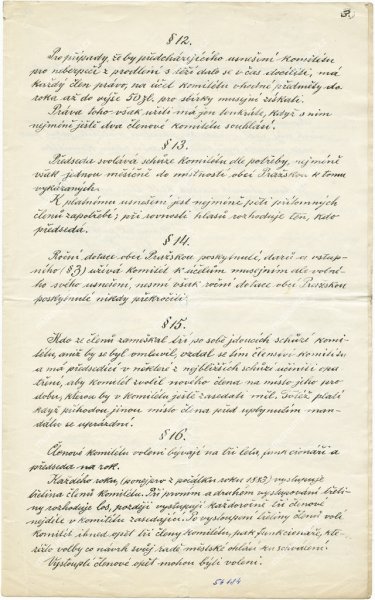 3.
§ 12.
Pro případy, že by předcházejícího usnešení komitétu
pro nebezpečí z prodlení s těží dalo se v čas docíliti, má
každý člen právo, na účel komitétu vhodné předměty do
roka až do výše 50 zl. pro sbírky musejní získati.
Práva toho však užíti má jen tenkráte, když s ním
nejméně ještě dva členové komitétu souhlasí.
§ 13.
Předseda svolává schůze komitétu dle potřeby, nejméně
však jednou měsíčně do místnosti obcí Pražskou k tomu
vykázaných.
K platnému usnešení jest nejméně pěti přítomných
členů zapotřebí; při rovnosti hlasů rozhoduje ten, kdo
předsedá.
§ 14.
Roční dotace obcí Pražskou poskytnuté, darů a vstup-
ného (§ 3) užívá komitét k účelům musejním dle volné-
ho svého usnešení, nesmí však roční dotace obcí Pražskou
poskytnuté nikdy překročiti.
§ 15.
Kdo ze členů zameškal tři po sobě jdoucích schůzí komi-
tétu, aniž by se byl omluvil, vzdal se tím členství v komitétu
a má předseda v některé z nejbližších schůzí učiniti opa-
tření, aby komitét zvolil nového člena na místo jeho pro
dobu, kterou by v komitétu ještě zasedati měl. Totéž platí
když příhodou jinou místo člena před uplynutím man-
dátu se uprázdní.
§ 16.
Členové komitétu voleni bývají na tři léta, funkcionáři a
předseda na rok.
Každého roku, (ponejprv z počátku roku 1883) vystupuje
třetina členů komitétu. Při prvním a druhém vystupování třeti-
ny rozhoduje los, později vystupují každoročně tři členové
nejdéle v komitétu zasedající. Po vystoupení třetiny členů volí
komitét ihned opět tři členy komitétu, pak funkcionáře, kte-
réžto volby co návrh svůj radě městské ohlásí ku schválení.
Vystouplí členové opět mohou býti voleni.